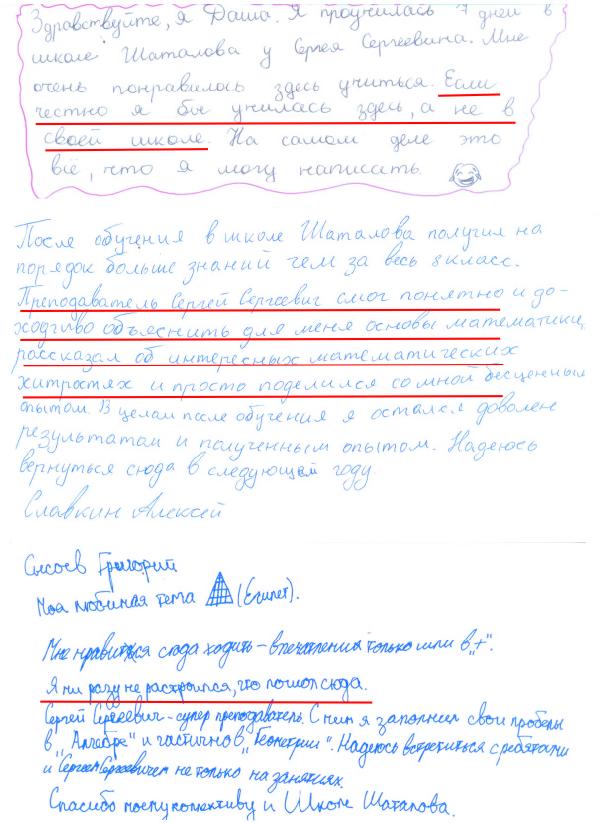 Здравствуйте, я Даша. Я проучилась 7 дней в
школе Шаталова у Сергея Сергеевича. Мне
очень понравилось здесь учиться. Если
честно я бы училась здесь, а не в
своей школе. На самом деле это
всё, что я могу написать.
После обучения в школе Шаталова получил на
порядок больше знаний чем за весь 8 класс.
Преподаватель Сергей Сергеевич смог понятно и до-
ходчиво объяснить для меня основы математики,
рассказал об интересных математических
хитростях и просто поделился со мной бесценным
опытом. В целом после обучения я остался доволен
результатом и полученным опытом. Надеюсь
вернуться сюда в следующем году
Славкин Алексей
Сысоев Григорий
Моя любимая тема (Египет).
Мне нравиться сюда ходить – впечатления только шли в „+“.
Я ни разу не расстроился, что пошол сюда.
Сергей Сергеевич – супер преподаватель. С ним я заполнил свои пробелы
в „Алгебре“ и частично в „Геометрии“. Надеюсь встретиться с ребятами
и Сергеем Сергеевичем не только на занятиях.
Спасибо коллективу и Школе Шаталова.